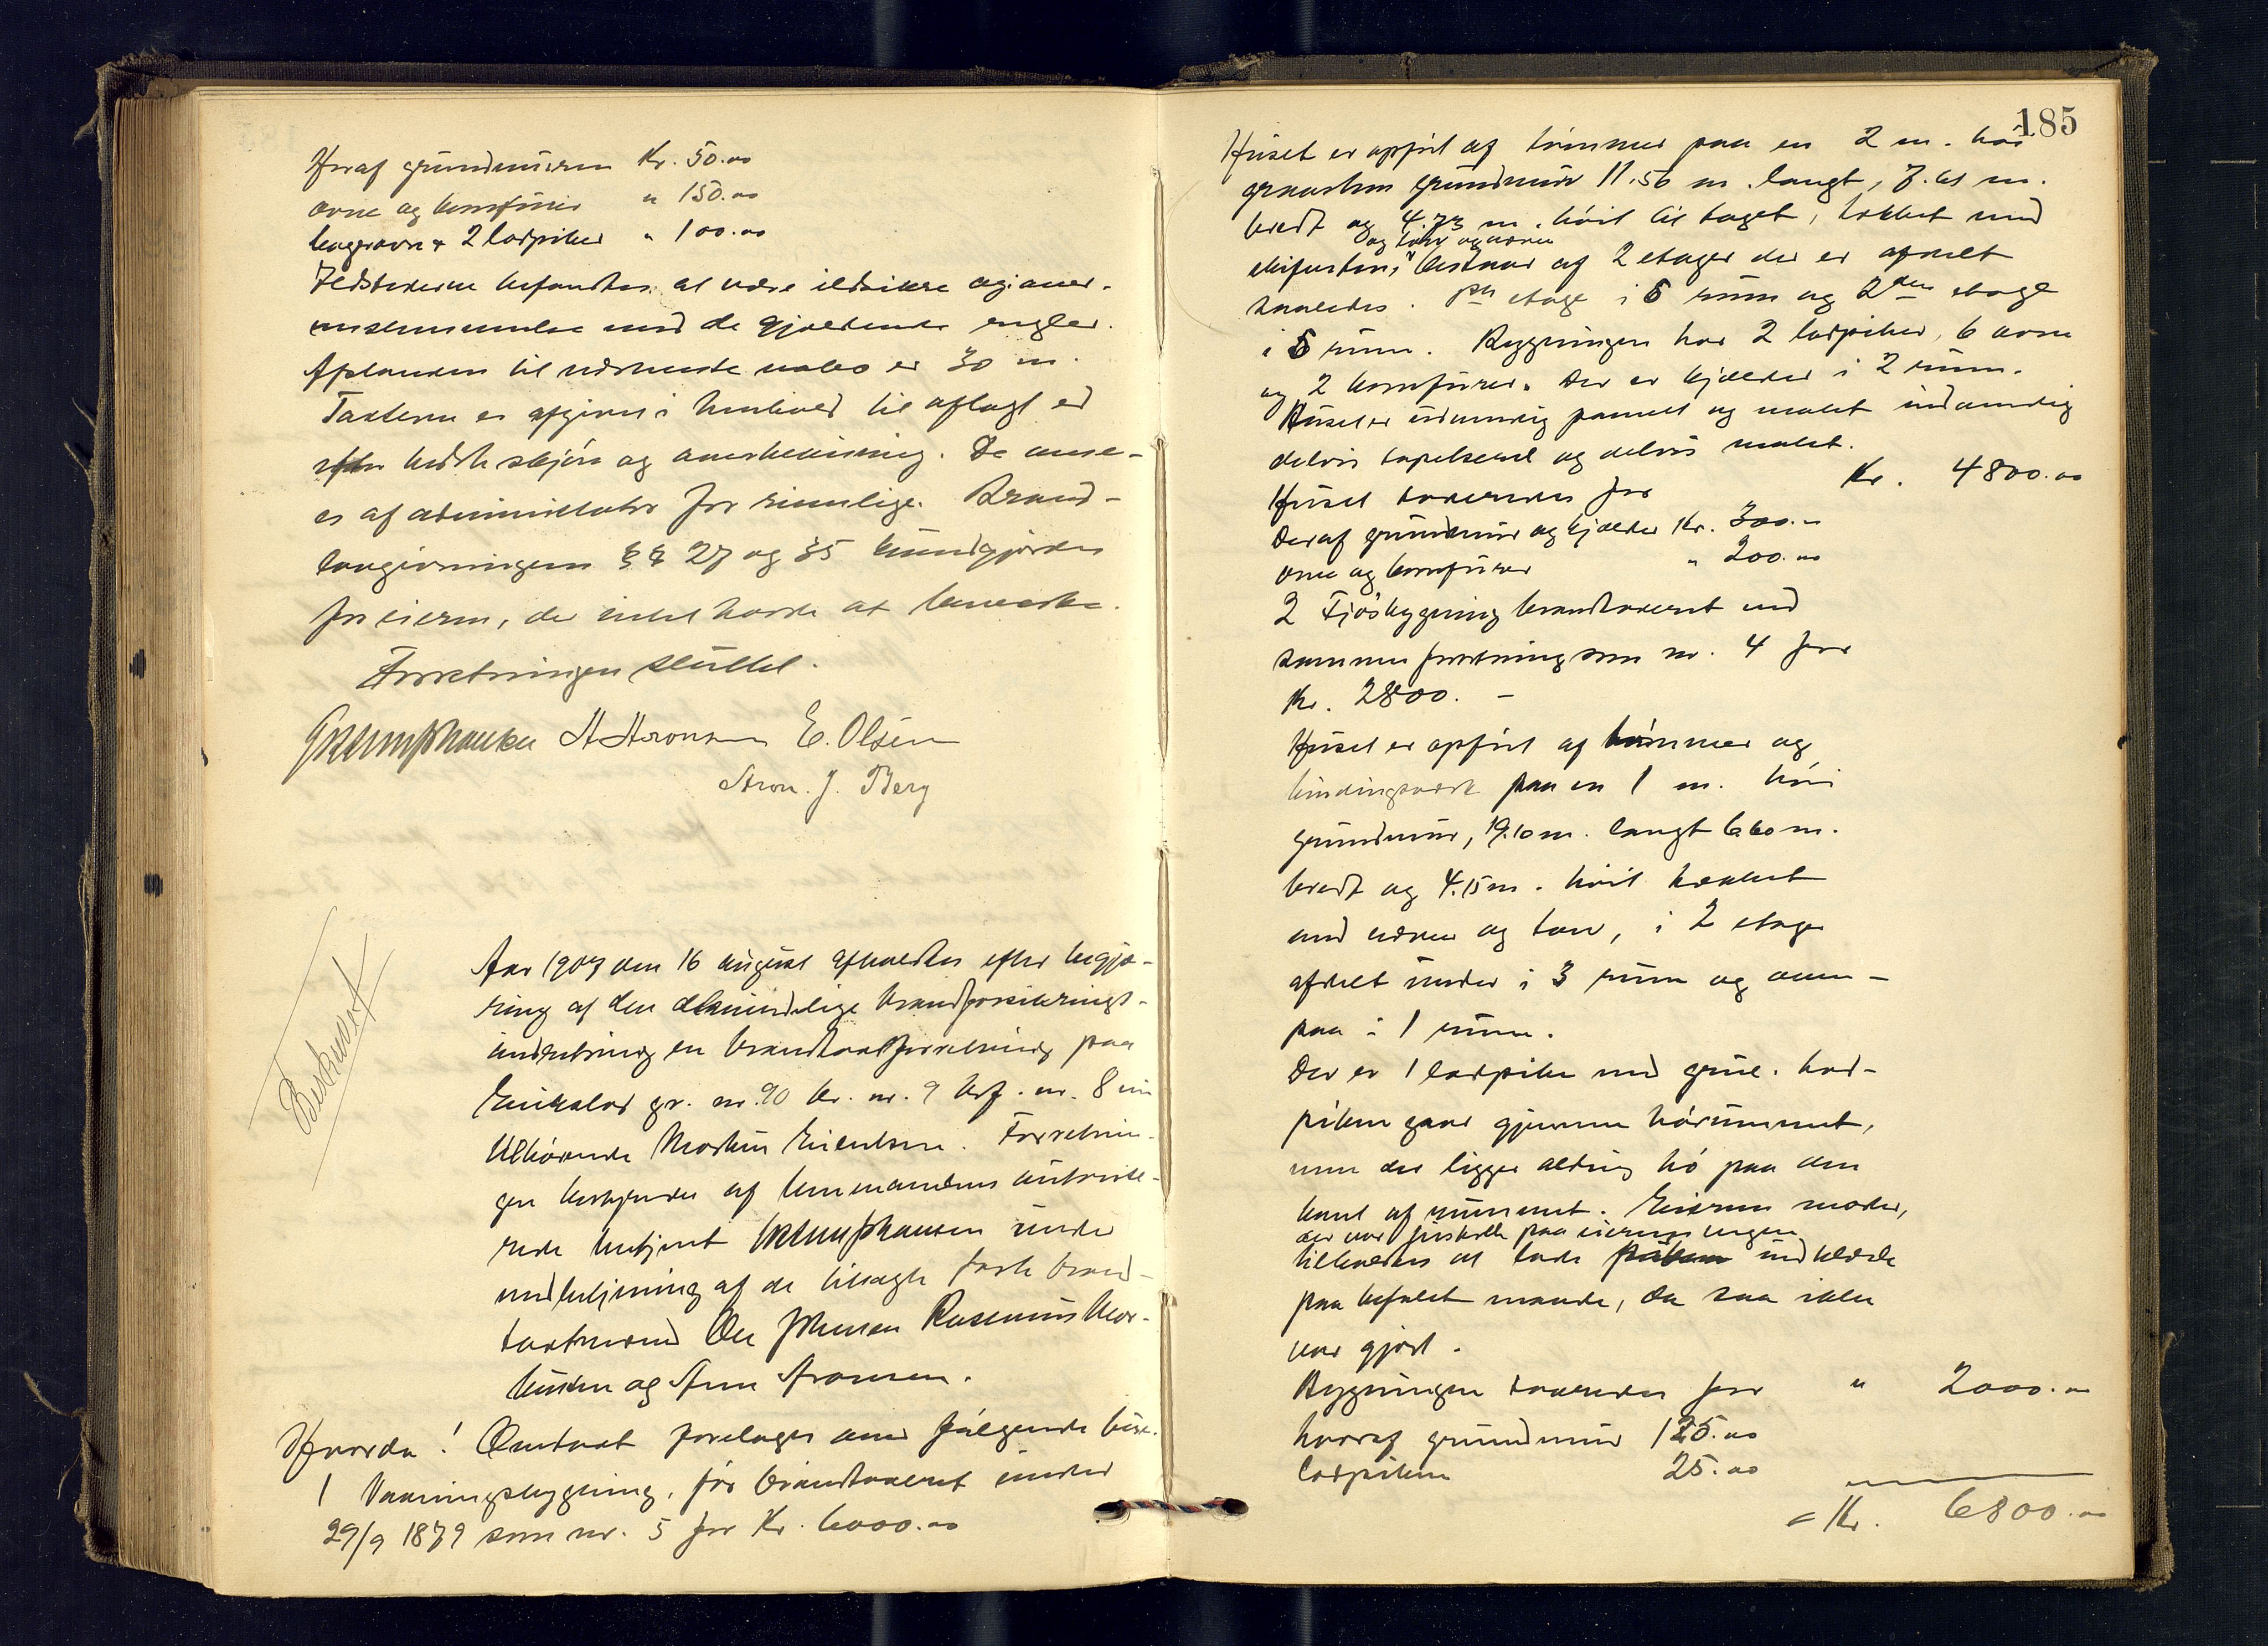 Hvoraf grundmuren Kr. 50.00
ovne og komfurer " 150.00
bagerovn & 2 ladpiber " 100.00
Ildstederne befandtes at være ildsikre og i over-
ensstemmelse med de gjældende regler.
Afstanden til nærmeste nabo er 30 m.
Taxterne er afgivne i henhold til aflagt ed
efter bedste skjøn og overbevisning. De anse-
es af administrator for rimelige. Brand-
lovgivningens §§ 27 og 35 kundgjordes
for eieren, der intet havde at bemærke.
Forretningen sluttet.
H Aronsen E. Olsen
Aron. J. Berg
Beskrevet
Aar 1907 den 16 august afholdtes efter begjæ-
ring af den almindelige brandforsikrings-
indretning en brandtaxtforretning paa
gr. nr. 90 br. nr. 9 brf. nr. 8
tilhørende Martin Eilertsen. Forretnin-
gen bestyredes af lensmandens autorise-
rede betjent under
medbetjening af de tilsagte faste brand-
taxtmænd Ole Johnsen Rasmus Mor-
tensen og Arne Aronsen.
Hvorda! Omtaxt foretages over følgende huse.
1 Vaaningsbygning, før brandtaxeret under
29/9 1879 som nr. 5 for Kr. 6000.00
185
Huset er opført af tømmer paa en 2 m. høi
graastens grundmur 11.56 m. langt, 7.61 m.
bredt og 4.73 m. høit til taget, tækket med
og torv og næver
skifersten, bestaar af 2 etager der er afdelt
saaledes. 1ste etage i 5 rum og 2den etage
i 5 rum. Bygningen har 2 ladpiber, 6 ovne
og 2 komfurer. Der er kjælder i 2 rum.
Huset er udvendig panelt og malet indvendig
delvis tapetseret og delvis malet.
Huset taxeredes for Kr. 4800.00
Deraf grundmur og kjælder Kr. 300.00
ovne og komfurer " 200.00
2 Fjøsbygning brandtaxeret ved
samme forretning som nr. 4 for
Kr. 2800. -
Huset er opført af tømmer og
bindingsværk paa en 1 m. høi
grundmur, 19.10 m. langt 6.60 m.
bredt og 4.15 m. høit tækket
med næver og torv, i 2 etager
afdelt under i 3 rum og oven-
paa i 1 rum.
Der er 1 ladpibe med grue. Lad-
piben gaar gjennem hørummet,
men der ligger aldrig hø paa den
kant af rummet. Eierens moder,
der var tilstede paa eierens vegne
tilholdtes at lade piben indklæde
paa befalet maade, da saa ikke
var gjort.
Bygningen taxeredes for " 2000.00
hvoraf grundmur 125.00
Ladpiben 25.00
= Kr. 6800.00